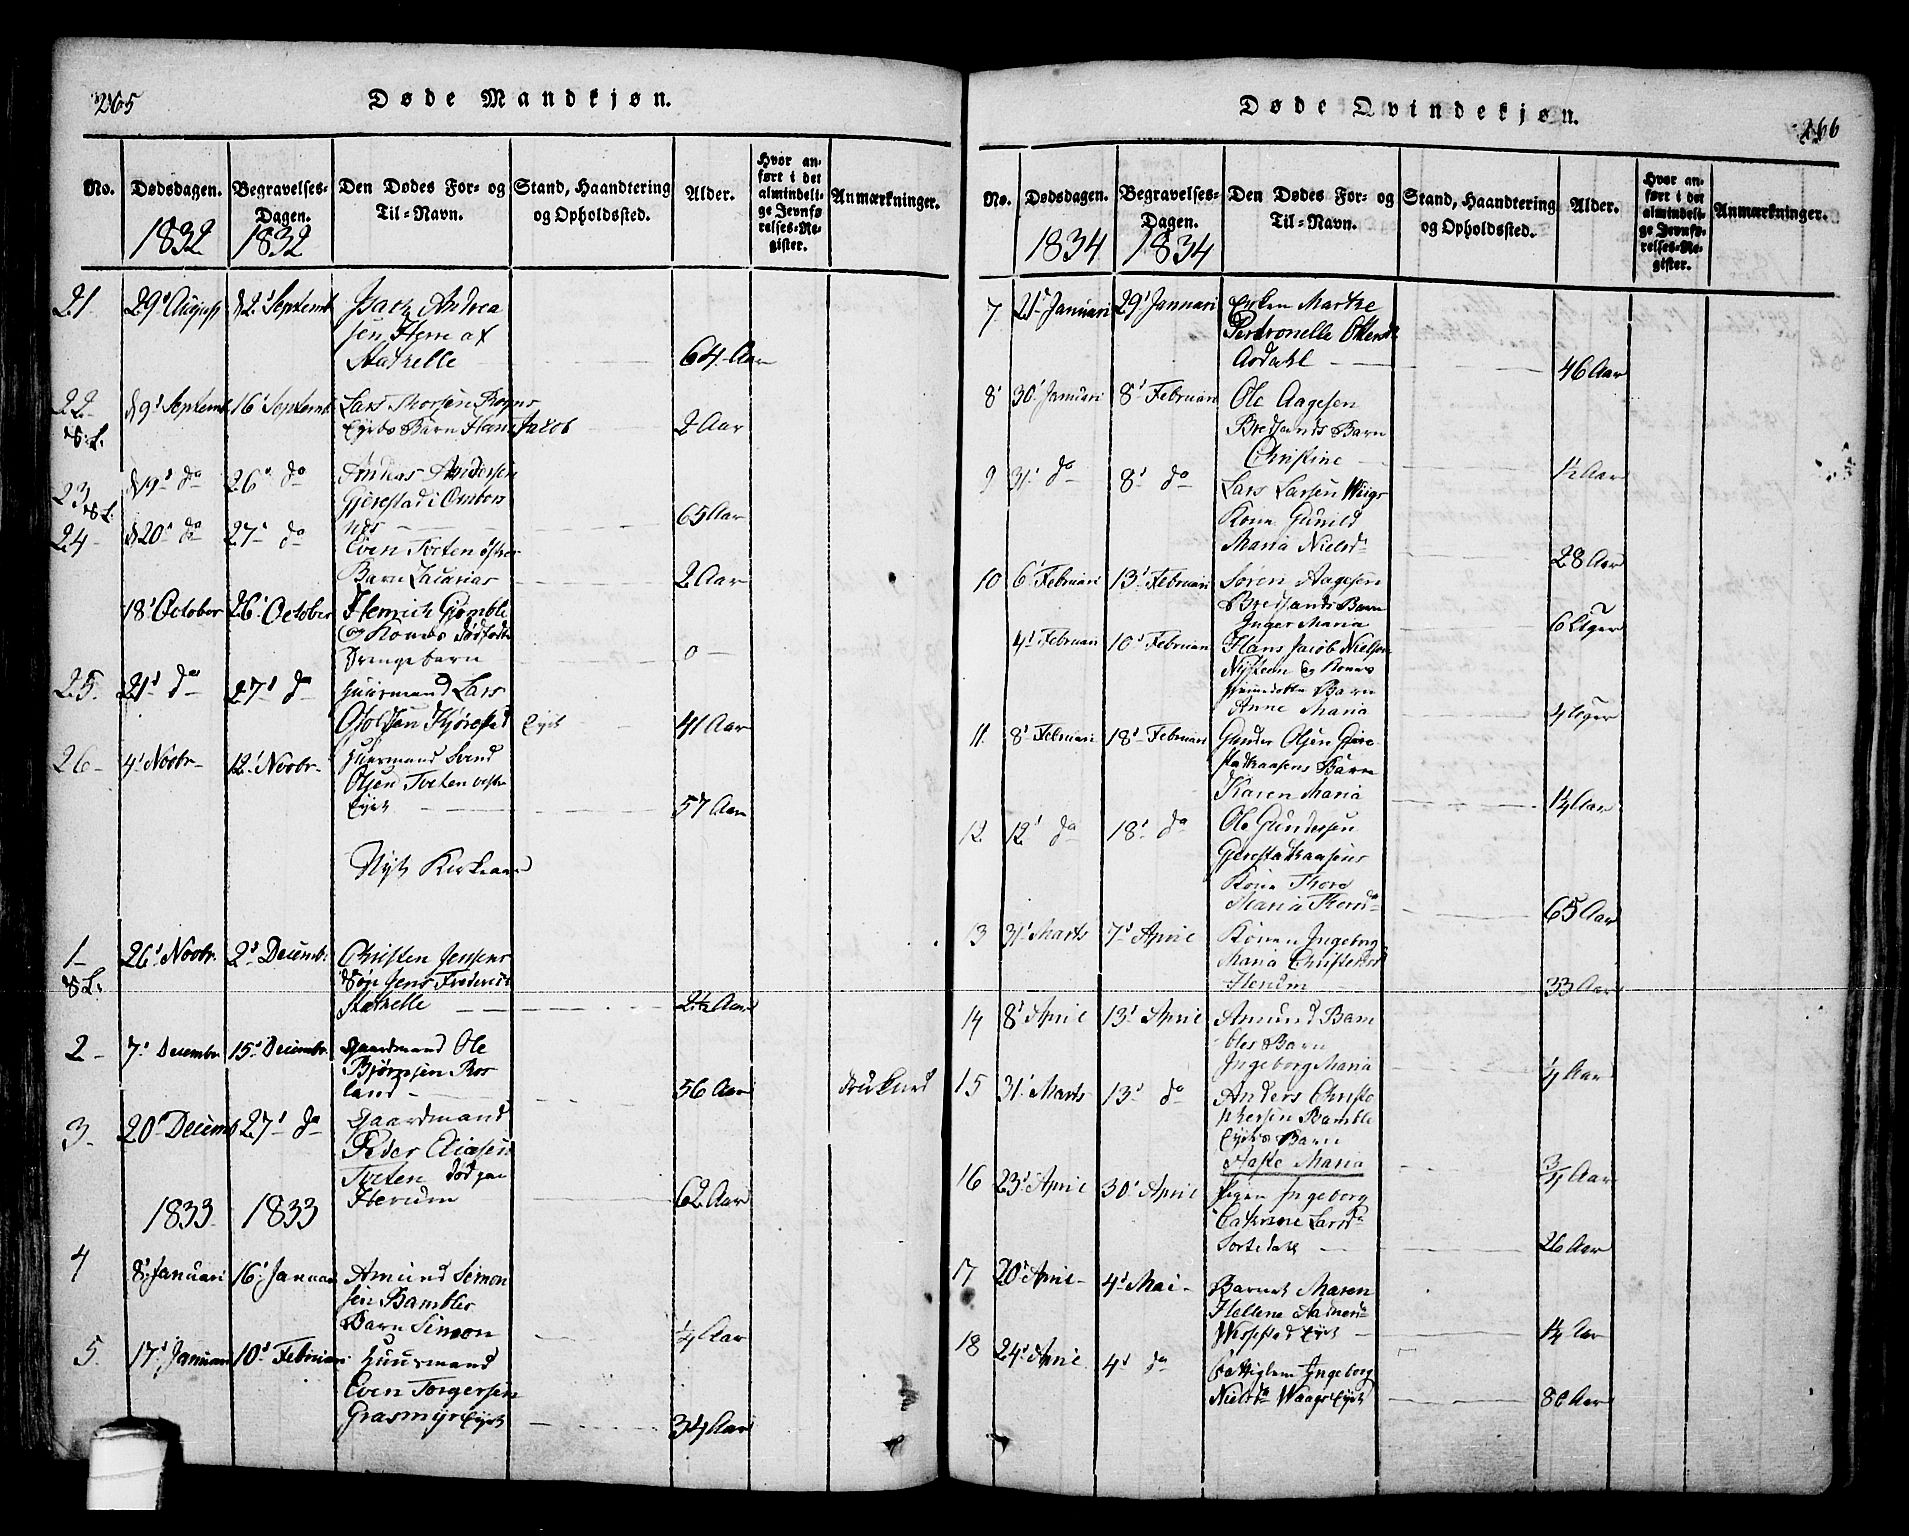 265
Døde Mandkjøn.
No.
Dødsdagen.
1832
Begravelses-
Dagen.
1832
Den Dødes For- og
Til-Navn.
Stand, Haandtering
og Opholdssted.
Alder.
Hvor an-
ført i det
almindeli-
ge Jevnfø
relses-Re-
gister.
Anmærkninger.
21 29 August 2 Septemb Isach Andrea
sen Herre af
Stathelle 64 Aar
22 9 Septemb 16 Septemb Lars
Eyets Barn Hans Jacob 2 Aar
23 19 do 26 do Andersen
Gjerestad i
65 Aar
24 20 do 27 do Even Tveten
Barn Zacarias 2 Aar
18 October 26 October Henrich Gomble
og Kones dødfødte
Drengebarn 0
25. 21 do 27 do Huusmand Lars
Gjerestad Eyet 41 Aar
26 4 Novbr 12 Novbr Huusmand Svend
Olsen Tveten
Eyet 57 Aar
Nyt Kirkegaard
1 26 Novbr. 2 Decemb. Christen Jensens
Søn Jens Frederich
Stathelle 2½ Aar
2 7 Decembr 15 Decembr. Gaardmand Ole
Bjørnsen Ros
land 56 Aar druknet
3 20 Decemb 27 do Gaardmand
Peder
Tveten død paa
Herum 62 Aar
1833 1833
4 8 Januari 16 Januar Amund Simon
sen Bambles
Barn Simon ¼ Aar
5. 17 Januari 10 Februari Huusmand
Even Torgersen
Grasmyr Eyet 34 Aar
266
Døde Qvindekjøn.
No.
Dødsdagen.
1834
Begravelses-
Dagen.
1834
Den Dødes For- og
Til-Navn.
Stand, Haandtering
og Opholdssted.
Alder.
Hvor an-
ført i det
almindeli-
ge Jevnfø-
relses-Re-
gister.
Anmærkninger.
7 21 Januari 29 Januari Enken Marthe
Pertronelle
46 Aar
8 30 Januari 8 Februari Ole Aagesen
Bredsands Barn
Christine 1½ Aar
9 31 do 8 do Lars Larsen
Kone Gunild
Maria Nielsd 28 Aar
10 6 Februari 13 Februari Søren Aagesen
Bredsands Barn
Inger Maria 6 Uger
4 Februari 10 Februari Hans Jacob Nielsen
og Kones
Barn
Anne Maria 4 Uger
11. 8 Februari 18 Februari Gunder Olsen Gjere
stadkaasens Barn
Karen Maria 1¼ Aar
12. 12 do 18 do Ole Gundersen
Gjerestadkaasens
Kone Thore
Maria 65 Aar
13 31 Marts 7 April Konen Ingeborg
Maria Christensd
Herum 33 Aar
14 8 April 13 April Amund Bam
bles Barn
Ingeborg Maria ¼ Aar
15 31 Marts 13 do Anders Christo
phersen Bamble
Eyets Barn
Aaste Maria ¾ Aar
16 23 April 30 April Pigen Ingeborg
Cathrine Larsd
Sortedahl 26 Aar
17 20 April 4 Mai Barnet Maren
Hellene
Eyet 1¼ Aar
18 24 April 4 do Fattiglem Ingeborg
Nielsd Waags Eyet 80 Aar